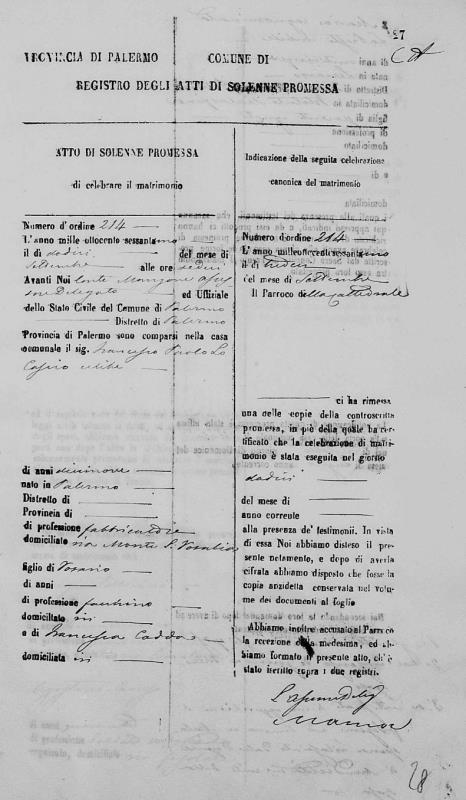 27
PROVINCIA DI PALERMO
COMUNE DI
REGISTRO DEGLI ATTI DI SOLENNE PROMESSA
ATTO DI SOLENNE PROMESSA
di celebrare il matrimonio
Numero d'ordine 214
L'anno mille ottocento sessantuno
il dì dodici del mese di
Settembre alle ore
Avanti Noi Conte
Delegato ed Uffiziale
dello Stato Civile del Comune di Palermo
Distretto di Palermo
Provincia di Palermo sono comparsi nella casa
comunale il sig. Francesco Paolo Lo
celibe
di anni diecinove
nato in Palermo
Distretto di
Provincia di
di professione fabbricatore
domiciliato via Monte S. Rosalia
figlio di Rosario
di anni
di professione facchino
domiciliato ivi
e di Francesca
domiciliata ivi
Indicazione della seguita celebrazione
canonica del matrimonio
Numero d'ordine 214
L'anno milleottocento sessantuno
il dì
del mese di Settembre
Il Parroco della Cattedrale
ci ha rimessa
una delle copie della controscritta
promessa, in piè della quale ha cer-
tificato che la celebrazione di matri-
monio è stata eseguita nel giorno
dodici
del mese di
anno corrente
alla presenza de' testimonii. In vista
di essa Noi abbiamo disteso il pre-
sente notamento, e dopo di averla
cifrata abbiamo disposto che fosse la
copia anzidetta conservata nel volu-
me dei documenti al foglio
Abbiamo inoltre accusato al Parroco
la recezione della medesima, ed ab-
biamo formato il presente atto, ch'è
stato iscritto sopra i due registri.
28